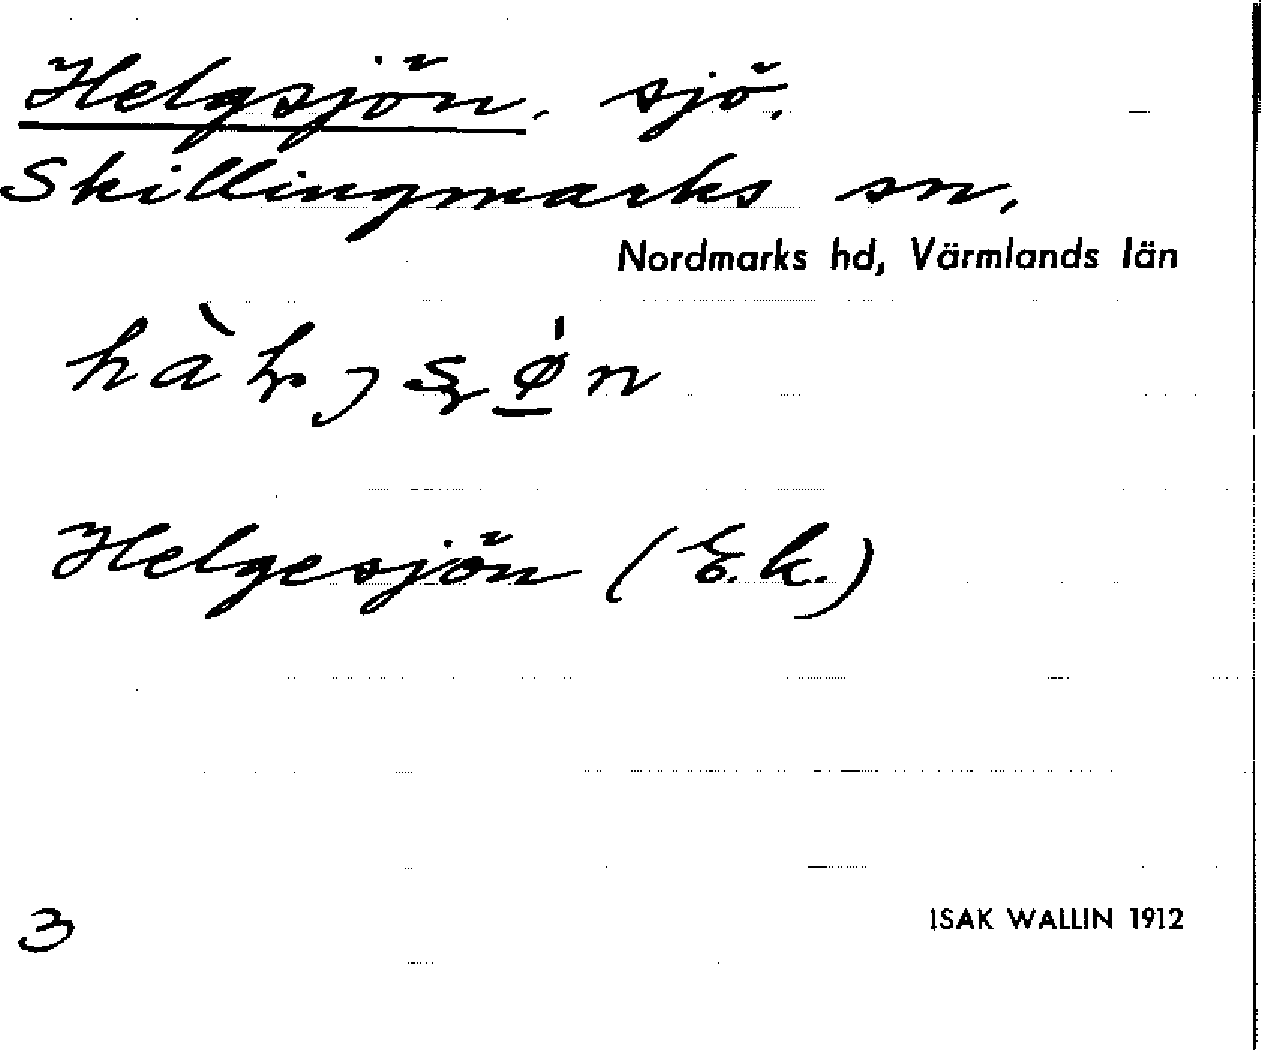 Helgsjön, sjö.
Skillingmarks sn,
Nordmarks hd, Värmlands län
Helgesjön (E.k.)
3
ISAK WALLIN 1912